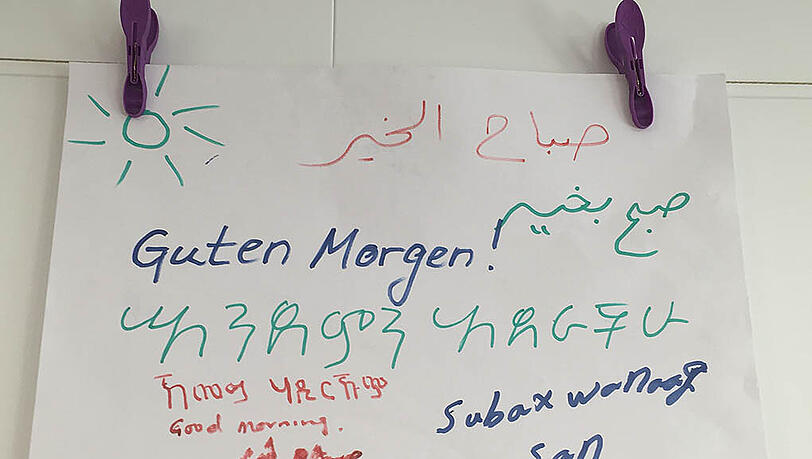 صباح الخير
صبح بخیر
Guten Morgen!
እንደምን አደራችሁ
Good morning.
Subax wanaag
san